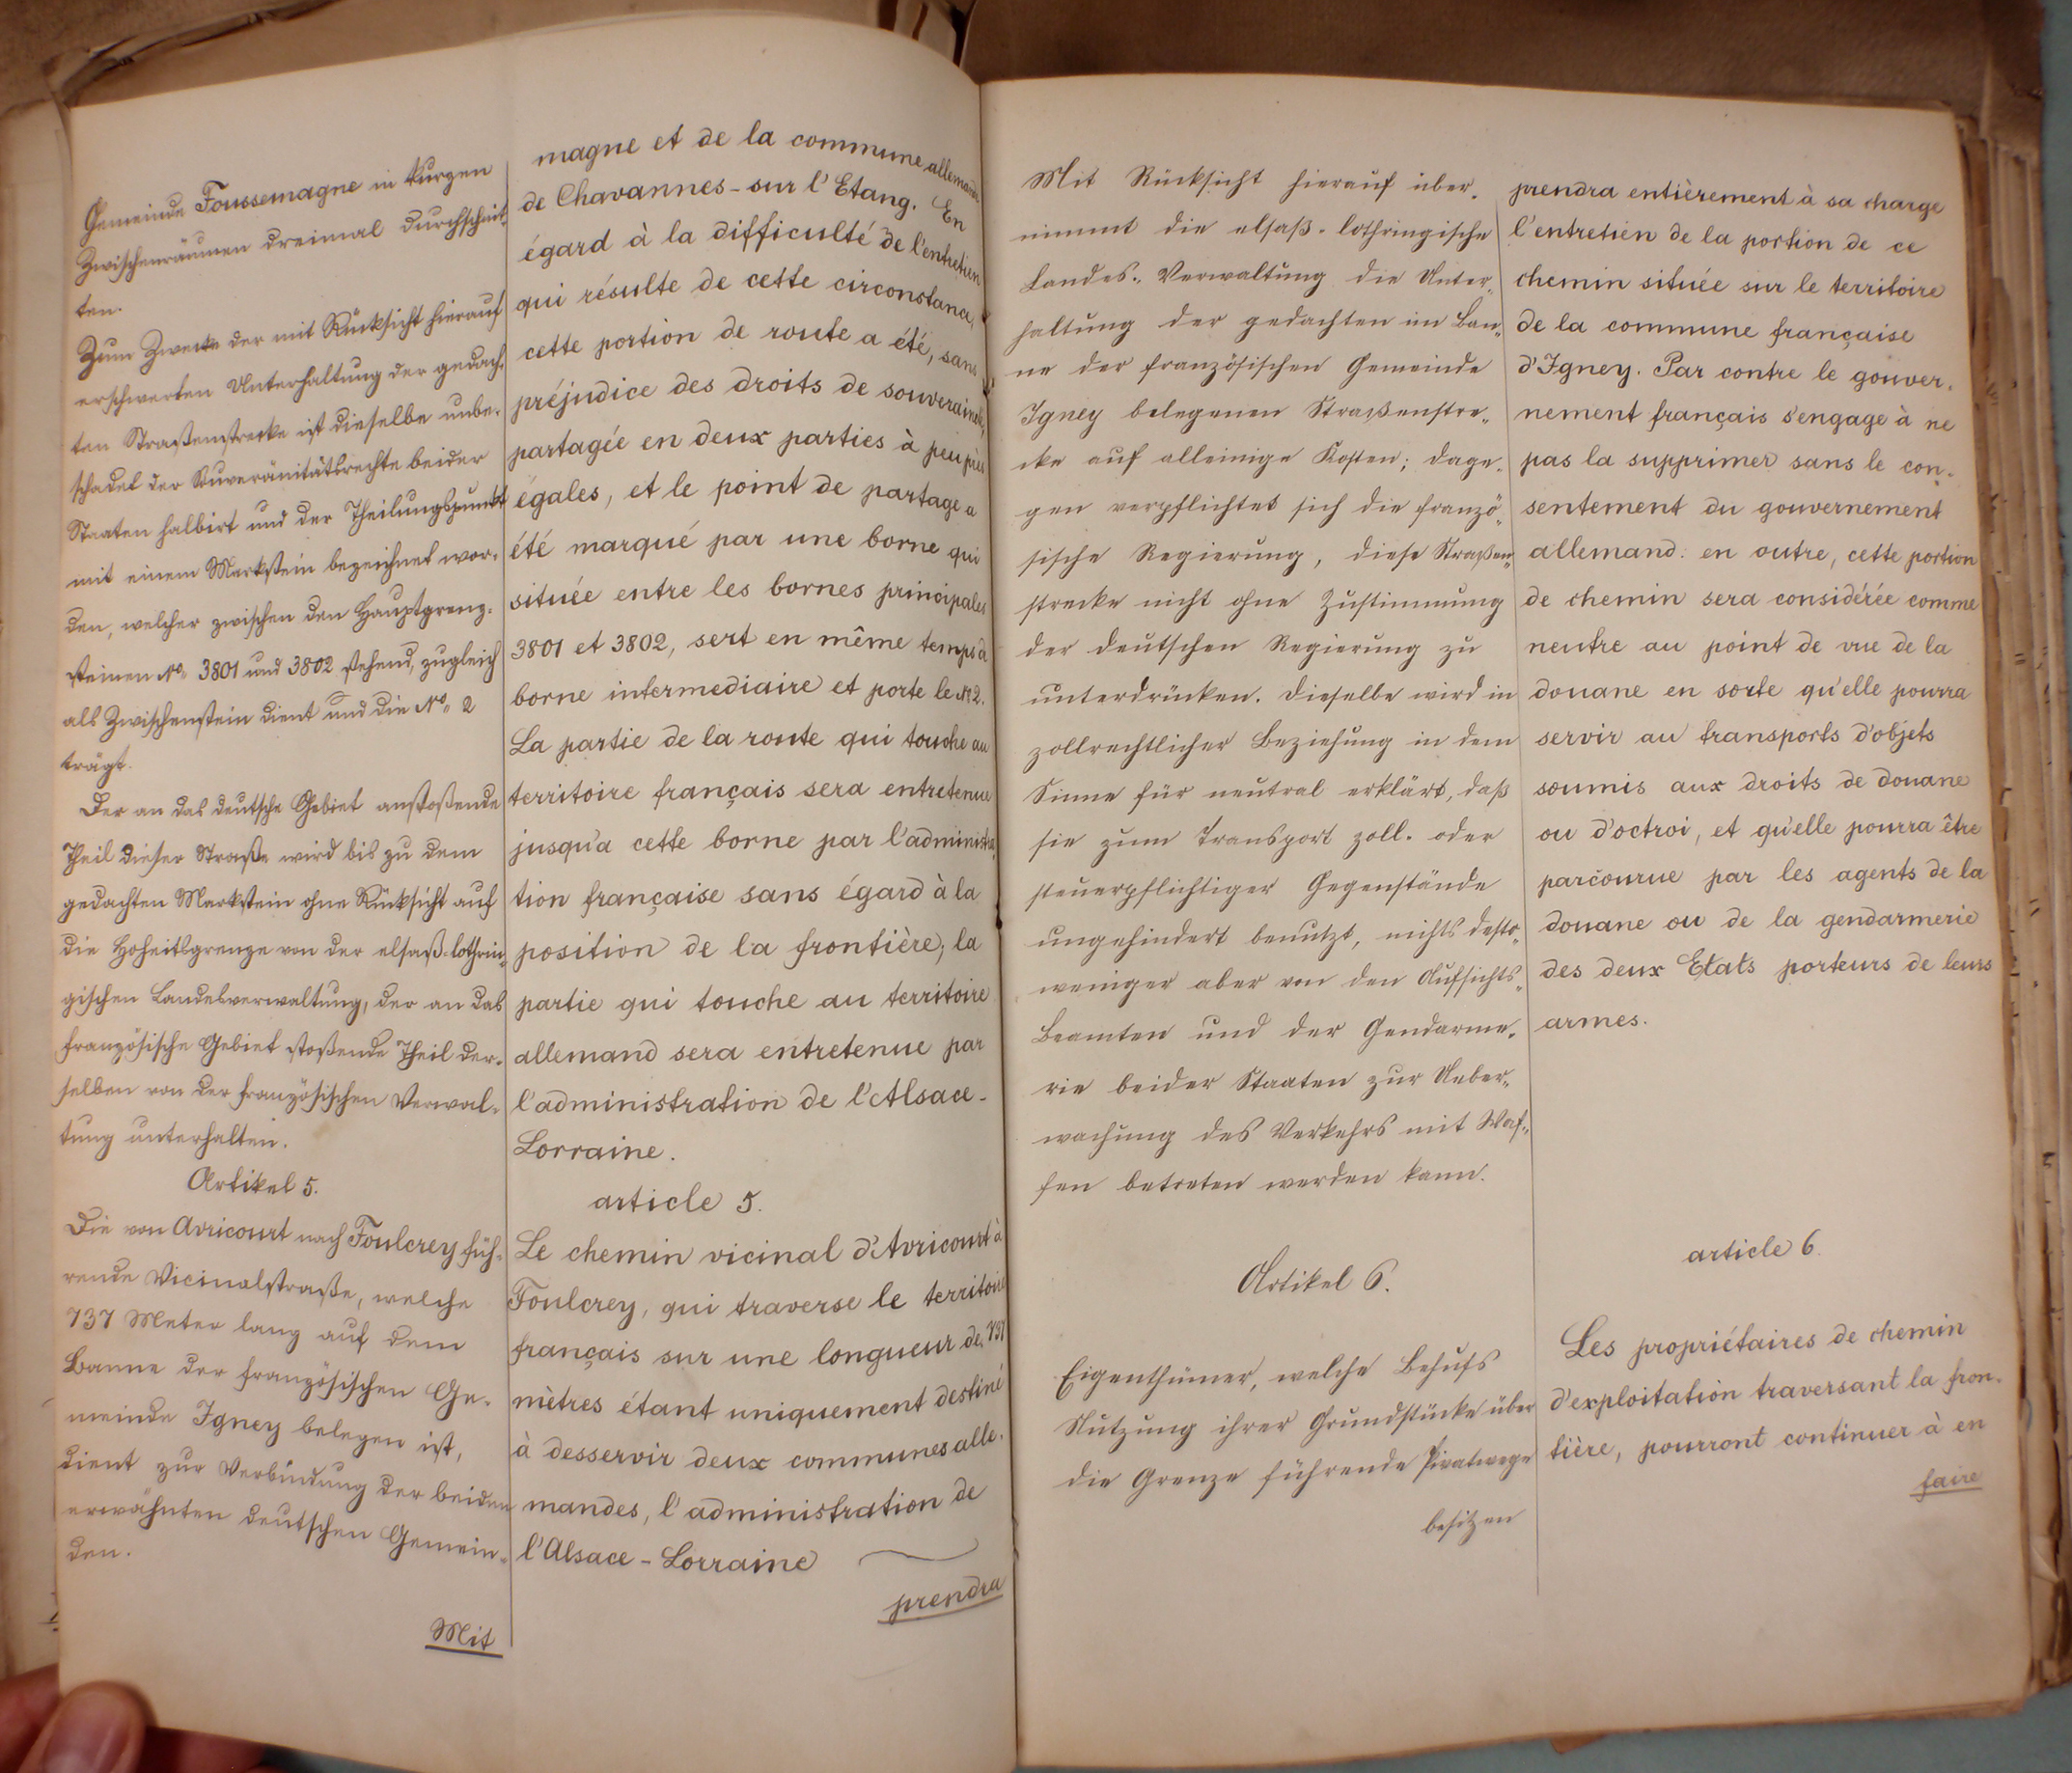 Gemeinde Foussemagne in kurzen
Zwischenräumen dreimal durchschnit-
ten.
Zum Zwecke der mit Rücksicht hierauf
erschwerten Unterhaltung der gedach-
ten Straßenstrecke ist dieselbe unbe-
schadet der Souveränitätsrechte beider
Staaten halbirt und der Theilungspunkt
mit einem Markstein bezeichnet wor-
den, welcher zwischen den Hauptgrenz-
steinen No. 3801 und 3802 stehend, zugleich
als Zwischenstein dient und die No. 2
trägt.
Der an das deutsche Gebiet anstoßende
Theil dieser Straße wird bis zu dem
gedachten Markstein ohne Rücksicht auf
die Hoheitsgrenze von der elsaß-lothrin-
gischen Landesverwaltung, der an das
französische Gebiet stoßende Theil der-
selben von der französischen Verwal-
tung unterhalten.
Artikel 5.
Die von Avricourt nach Foulcrey füh-
rende Vicinalstraße, welche
737 Meter lang auf dem
Banne der französischen Ge-
meinde Igney belegen ist,
dient zur Verbindung der beiden
erwähnten deutschen Gemein-
den.
Mit
magne et de la commune allemande
de Chavannes-sur l'Etang. En
égard à la difficulté de l'entretien
qui résulte de cette circonstance,
cette portion de route a été, sans
préjudice des droits de souveraineté,
partagée en deux parties à peu près
égales, et le point de partage a
été marqué par une borne qui
située entre les bornes principales
3801 et 3802, sert en même temps à
borne intermediaire et porte le No 2.
La partie de la route qui touche au
territoire français sera entretenue
jusqu'a cette borne par l'administra-
tion française sans égard à la
position de la frontière; la
partie qui touche au territoire
allemand sera entretenue par
l'administration de l'Alsace-
Lorraine.
article 5.
Le chemin vicinal d'Avricourt à
Foulcrey, qui traverse le territoire
français sur une longueur de 737
mètres étant uniquement destiné
à desservir deux communes alle-
mandes, l'administration de
l'Alsace-Lorraine
prendra
Mit Rücksicht hierauf über-
nimmt die elsaß-lothringische
Landes-Verwaltung die Unter-
haltung der gedachten im Ban-
ne der französischen Gemeinde
Igney belegenen Straßenstre-
cke auf alleinige Kosten; dage-
gen verpflichtet sich die franzö-
sische Regierung, diese Straßen-
strecke nicht ohne Zustimmung
der deutschen Regierung zu
unterdrücken. Dieselbe wird in
zollrechtlicher Beziehung in dem
Sinne für neutral erklärt, daß
sie zum Transport zoll- oder
steuerpflichtiger Gegenstände
ungehindert benutzt, nichts desto-
weniger aber von den Aufsichts-
Beamten und der Gendarme-
rie beider Staaten zur Ueber-
wachung des Verkehrs mit Waf-
fen betreten werden kann.
Artikel 6.
Eigenthümer, welche Behufs
Nutzung ihrer Grundstücke über
die Grenze führende Pivatwege
besitzen
prendra entièrement à sa charge
l'entretien de la portion de ce
chemin située sur le territoire
de la commune française
d'Igney. Par contre le gouver-
nement français s'engage à ne
pas la supprimer sans le con-
sentement du gouvernement
allemand: en outre, cette portion
de chemin sera considérée comme
neutre au point de vue de la
douane en sorte qu'elle pourra
servir au transports d'objets
soumis aux droits de douane
ou d'octroi, et qu'elle pourra être
parcourue par les agents de la
douane ou de la gendarmerie
des deux Etats porteurs de leurs
armes.
article 6.
Les propriétaires de chemin
d'exploitation traversant la fron-
tière, pourront continuer à en
faire